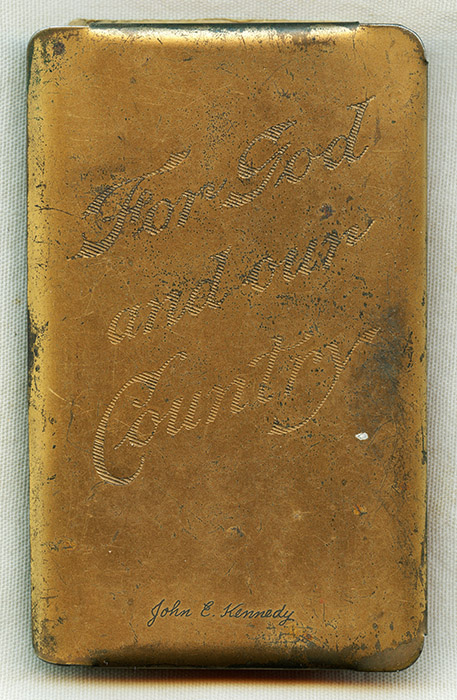 For God
and our
Country
John E. Kennedy